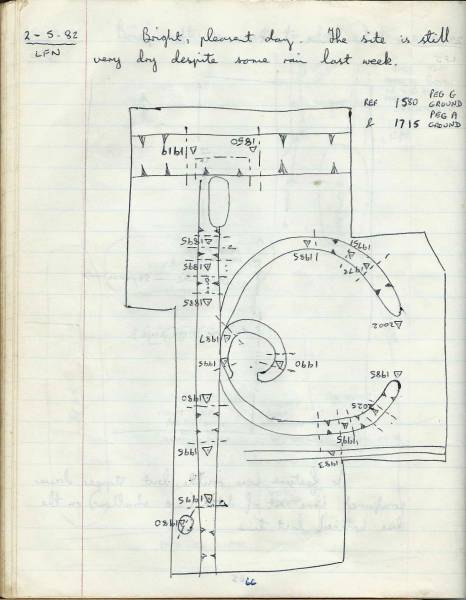 2-5-82
LFN
Bright, pleasant day. The site is still
very dry despite some rain last week.
REF 1580 PEG G GROUND
& 1715 PEG A GROUND
1850
1919
1985
1972
2002
1885
1987
1990
1985
1980
2025
1995
1995
1983
1995
1980
66